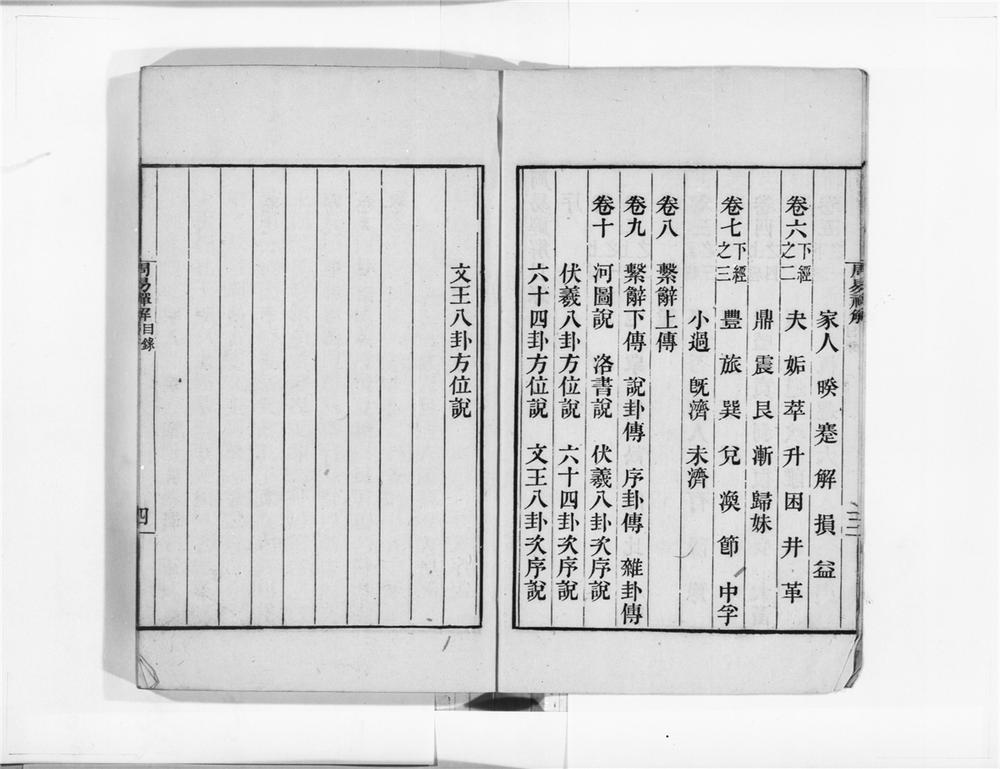 周易禪解
三
家人 暌 蹇 解 損 益
卷六下經之二 夬 姤 萃 升 困 井 革
鼎 震 艮 漸 歸妹
卷七下經之三 豐 旅 巽 兌 渙 節 中孚
小過 旣濟 未濟
卷八 繫辭上傳
卷九 繫辭下傳 說卦傳 序卦傳 雜卦傳
卷十 河圖說 洛書說 伏羲八卦次序說
伏羲八卦方位說 六十四卦次序說
六十四卦方位說 文王八卦次序說
文王八卦方位說
周易禪解目錄
四